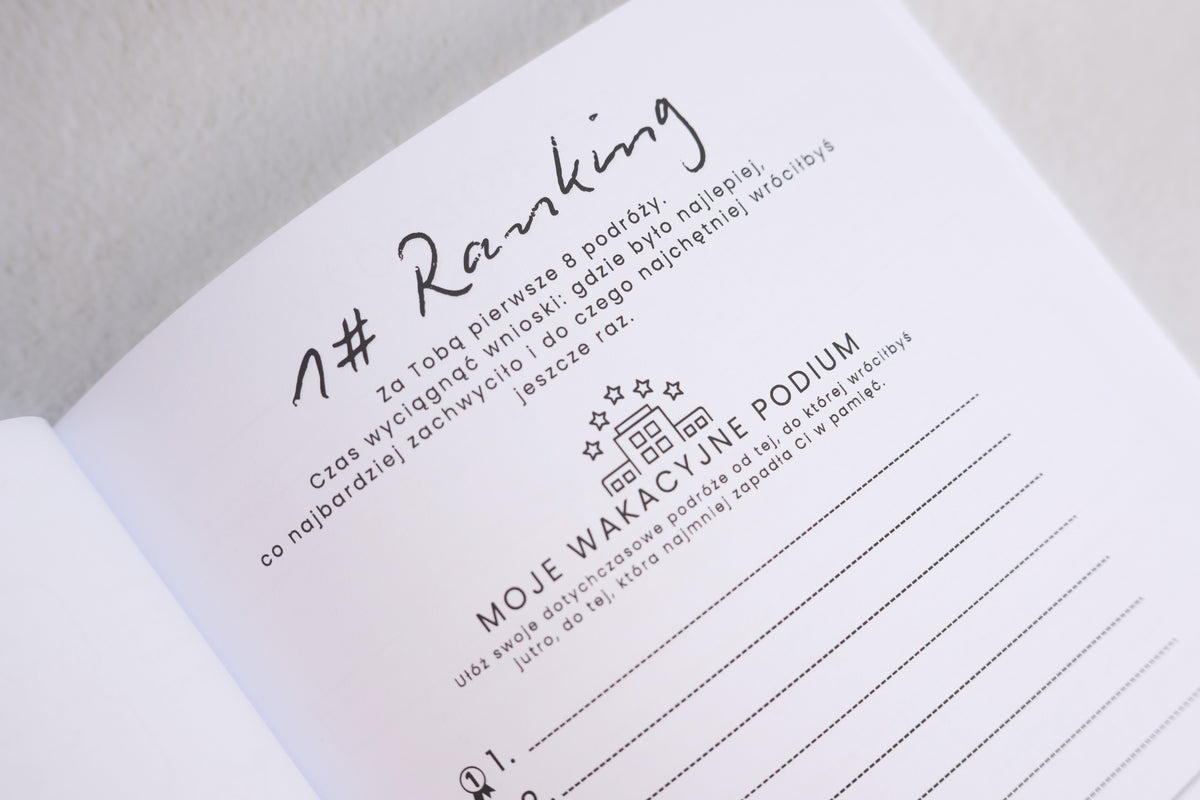 1# Ranking
Za Tobą pierwsze 8 podróży.
Czas wyciągnąć wnioski: gdzie było najlepiej,
co najbardziej zachwyciło i do czego najchętniej wróciłbyś
jeszcze raz.
MOJE WAKACYJNE PODIUM
Ułóż swoje dotychczasowe podróże od tej, do której wróciłbyś
jutro, do tej, która najmniej zapadła Ci w pamięć.
1 1.